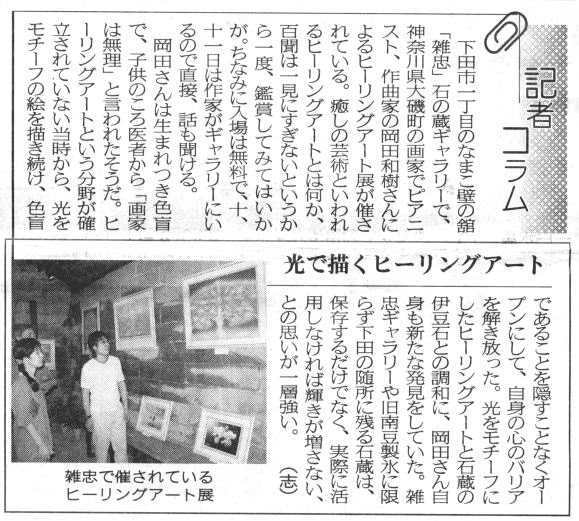 記者
コラム
下田市一丁目のなまこ壁の館
「雑忠」石の蔵ギャラリーで、
神奈川県大磯町の画家でピアニ
スト、作曲家の岡田和樹さんに
よるヒーリングアート展が催さ
れている。癒しの芸術といわれ
るヒーリングアートとは何か、
百聞は一見にすぎないというか
ら一度、鑑賞してみてはいか
が。ちなみに入場は無料で、十、
十一日は作家がギャラリーにい
るので直接、話も聞ける。
岡田さんは生まれつき色盲
で、子供のころ医者から「画家
は無理」と言われたそうだ。ヒ
ーリングアートという分野が確
立されていない当時から、光を
モチーフの絵を描き続け、色盲
光で描くヒーリングアート
であることを隠すことなくオー
プンにして、自身の心のバリア
を解き放った。光をモチーフに
したヒーリングアートと石蔵の
伊豆石との調和に、岡田さん自
身も新たな発見をしていた。雑
忠ギャラリーや旧南豆製氷に限
らず下田の随所に残る石蔵は、
保存するだけでなく、実際に活
用しなければ輝きが増さない、
との思いが一層強い。（志）
雑忠で催されている
ヒーリングアート展